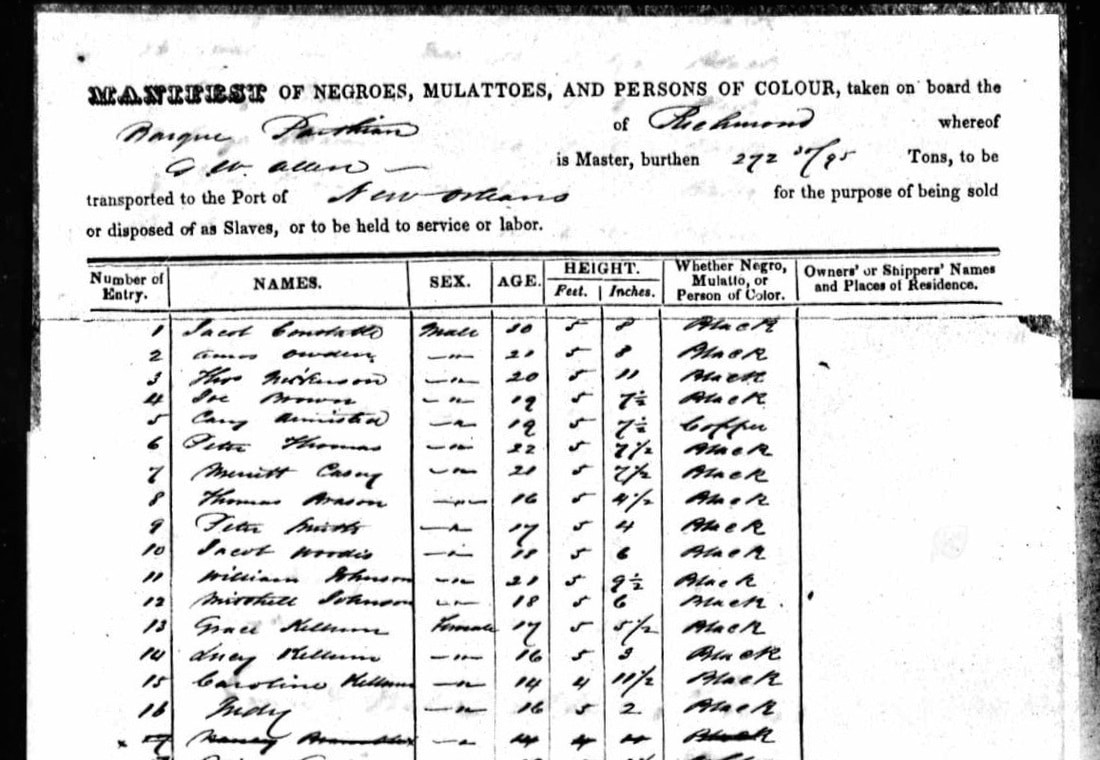 MANIFEST OF NEGROES, MULATTOES, AND PERSONS OF COLOUR, taken on board the
Barque Parthian of Richmond whereof
G. W. Allen is Master, burthen 272 30/95 Tons, to be
transported to the Port of New Orleans for the purpose of being sold
or disposed of as Slaves, or to be held to service or labor.
Number of Entry. NAMES. SEX. AGE. HEIGHT. Feet. Inches. Whether Negro, Mulatto, or Person of Color. Owners' or Shippers' Names and Places of Residence.
1 Jacob Male 5 8 Black
2 Amos Owden — " — 21 5 8 Black
3 Thos — " — 20 5 11 Black
4 Joe Brown — " — 19 5 7½ Black
5 Cary Armistead — " — 19 5 7½ Copper
6 Peter Thomas — " — 22 5 7½ Black
7 Merritt Casey — " — 21 5 7½ Black
8 Thomas — " — 16 5 4½ Black
9 Peter Smith — " — 17 5 4 Black
10 Jacob Woodis — " — 18 5 6 Black
11 William Johnson — " — 21 5 9½ Black
12 Mitchell Johnson — " — 18 5 6 Black
13 Grace Kellum Female 17 5 5½ Black
14 Lucy Kellum — " — 16 5 3 Black
15 Caroline Kellum — " — 14 4 11½ Black
16 Judy — " — 16 5 2 Black
x 17 Nancy — " — 14 4 Black